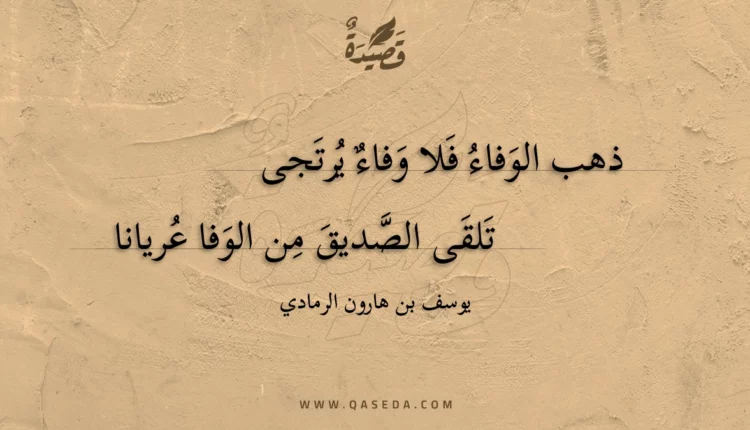 قَصِيدَةٌ
ذهب الوَفاءُ فَلا وَفاءٌ يُرتَجى
تَلقَى الصَّديقَ مِن الوَفا عُريانا
يوسف بن هارون الرمادي
WWW.QASEDA.COM